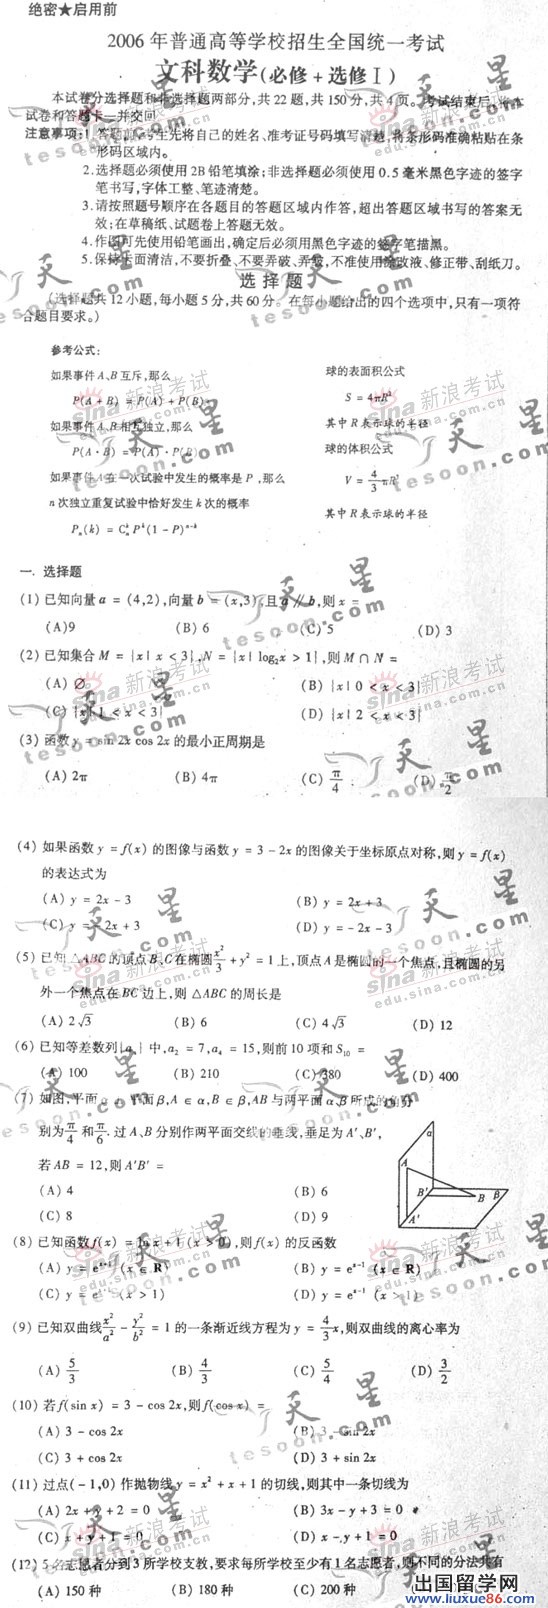 绝密★启用前
2006年普通高等学校招生全国统一考试
文科数学(必修+选修Ⅰ)
本试卷分选择题和非选择题两部分,共22题,共150分,共4页。考试结束后,将本
试卷和答题卡一并交回
注意事项:1.答题前,考生先将自己的姓名、准考证号码填写清楚,将条形码准确粘贴在条
形码区域内。
2.选择题必须使用2B铅笔填涂;非选择题必须使用0.5毫米黑色字迹的签字
笔书写,字体工整、笔迹清楚。
3.请按照题号顺序在各题目的答题区域内作答,超出答题区域书写的答案无
效;在草稿纸、试题卷上答题无效。
4.作图可先使用铅笔画出,确定后必须用黑色字迹的签字笔描黑。
5.保持卡面清洁,不要折叠、不要弄破、弄皱,不准使用涂改液、修正带、刮纸刀。
选择题
(选择题共12小题,每小题5分,共60分。在每小题给出的四个选项中,只有一项符
合题目要求。)
参考公式:
如果事件A、B互斥,那么 球的表面积公式
P(A + B) = P(A) + P(B) S = 4πR²
如果事件A、B相互独立,那么 其中R表示球的半径
P(A · B) = P(A) · P(B) 球的体积公式
如果事件A在一次试验中发生的概率是P,那么 V = 4/3 πR³
n次独立重复试验中恰好发生k次的概率 其中R表示球的半径
Pₙ(k) = CₙᵏPᵏ(1 - P)ⁿ⁻ᵏ
一. 选择题
(1) 已知向量a = (4,2),向量b = (x,3),且a // b,则x =
(A)9 (B) 6 (C) 5 (D) 3
(2) 已知集合M = {x | x < 3},N = {x | log₂x > 1},则M ∩ N =
(A) ∅ (B) {x | 0 < x < 3}
(C) {x | 1 < x < 3} (D) {x | 2 < x < 3}
(3) 函数y = sin 2x cos 2x的最小正周期是
(A) 2π (B) 4π (C) π/4 (D) π/2
(4) 如果函数y = f(x)的图像与函数y = 3 - 2x的图像关于坐标原点对称,则y = f(x)
的表达式为
(A) y = 2x - 3 (B) y = 2x + 3
(C) y = - 2x + 3 (D) y = - 2x - 3
(5) 已知△ABC的顶点B、C在椭圆x²/3 + y² = 1上,顶点A是椭圆的一个焦点,且椭圆的另
外一个焦点在BC边上,则△ABC的周长是
(A) 2√3 (B) 6 (C) 4√3 (D) 12
(6) 已知等差数列{aₙ}中,a₂ = 7,a₄ = 15,则前10项和S₁₀ =
(A) 100 (B) 210 (C) 380 (D) 400
(7) 如图,平面α⊥平面β,A ∈ α,B ∈ β,AB与两平面α、β所成的角分
别为π/4和π/6. 过A、B分别作两平面交线的垂线,垂足为A′、B′,
若AB = 12,则A′B′ =
(A) 4 (B) 6
(C) 8 (D) 9
α A B′ B β A′
(8) 已知函数f(x) = ln x + 1 (x > 0),则f(x)的反函数
(A) y = eˣ⁺¹ (x ∈ R) (B) y = eˣ⁻¹ (x ∈ R)
(C) y = eˣ⁺¹ (x > 1) (D) y = eˣ⁻¹ (x > 1)
(9) 已知双曲线x²/a² - y²/b² = 1的一条渐近线方程为y = 4/3 x,则双曲线的离心率为
(A) 5/3 (B) 4/3 (C) 5/4 (D) 3/2
(10) 若f(sin x) = 3 - cos 2x,则f(cos x) =
(A) 3 - cos 2x (B) 3 - sin 2x
(C) 3 + cos 2x (D) 3 + sin 2x
(11) 过点(- 1,0)作抛物线y = x² + x + 1的切线,则其中一条切线为
(A) 2x + y + 2 = 0 (B) 3x - y + 3 = 0
(C) x + y + 1 = 0 (D) x - y + 1 = 0
(12) 5名志愿者分到3所学校支教,要求每所学校至少有1名志愿者,则不同的分法共有
(A) 150种 (B) 180种 (C) 200种
出国留学网
www.liuxue86.com